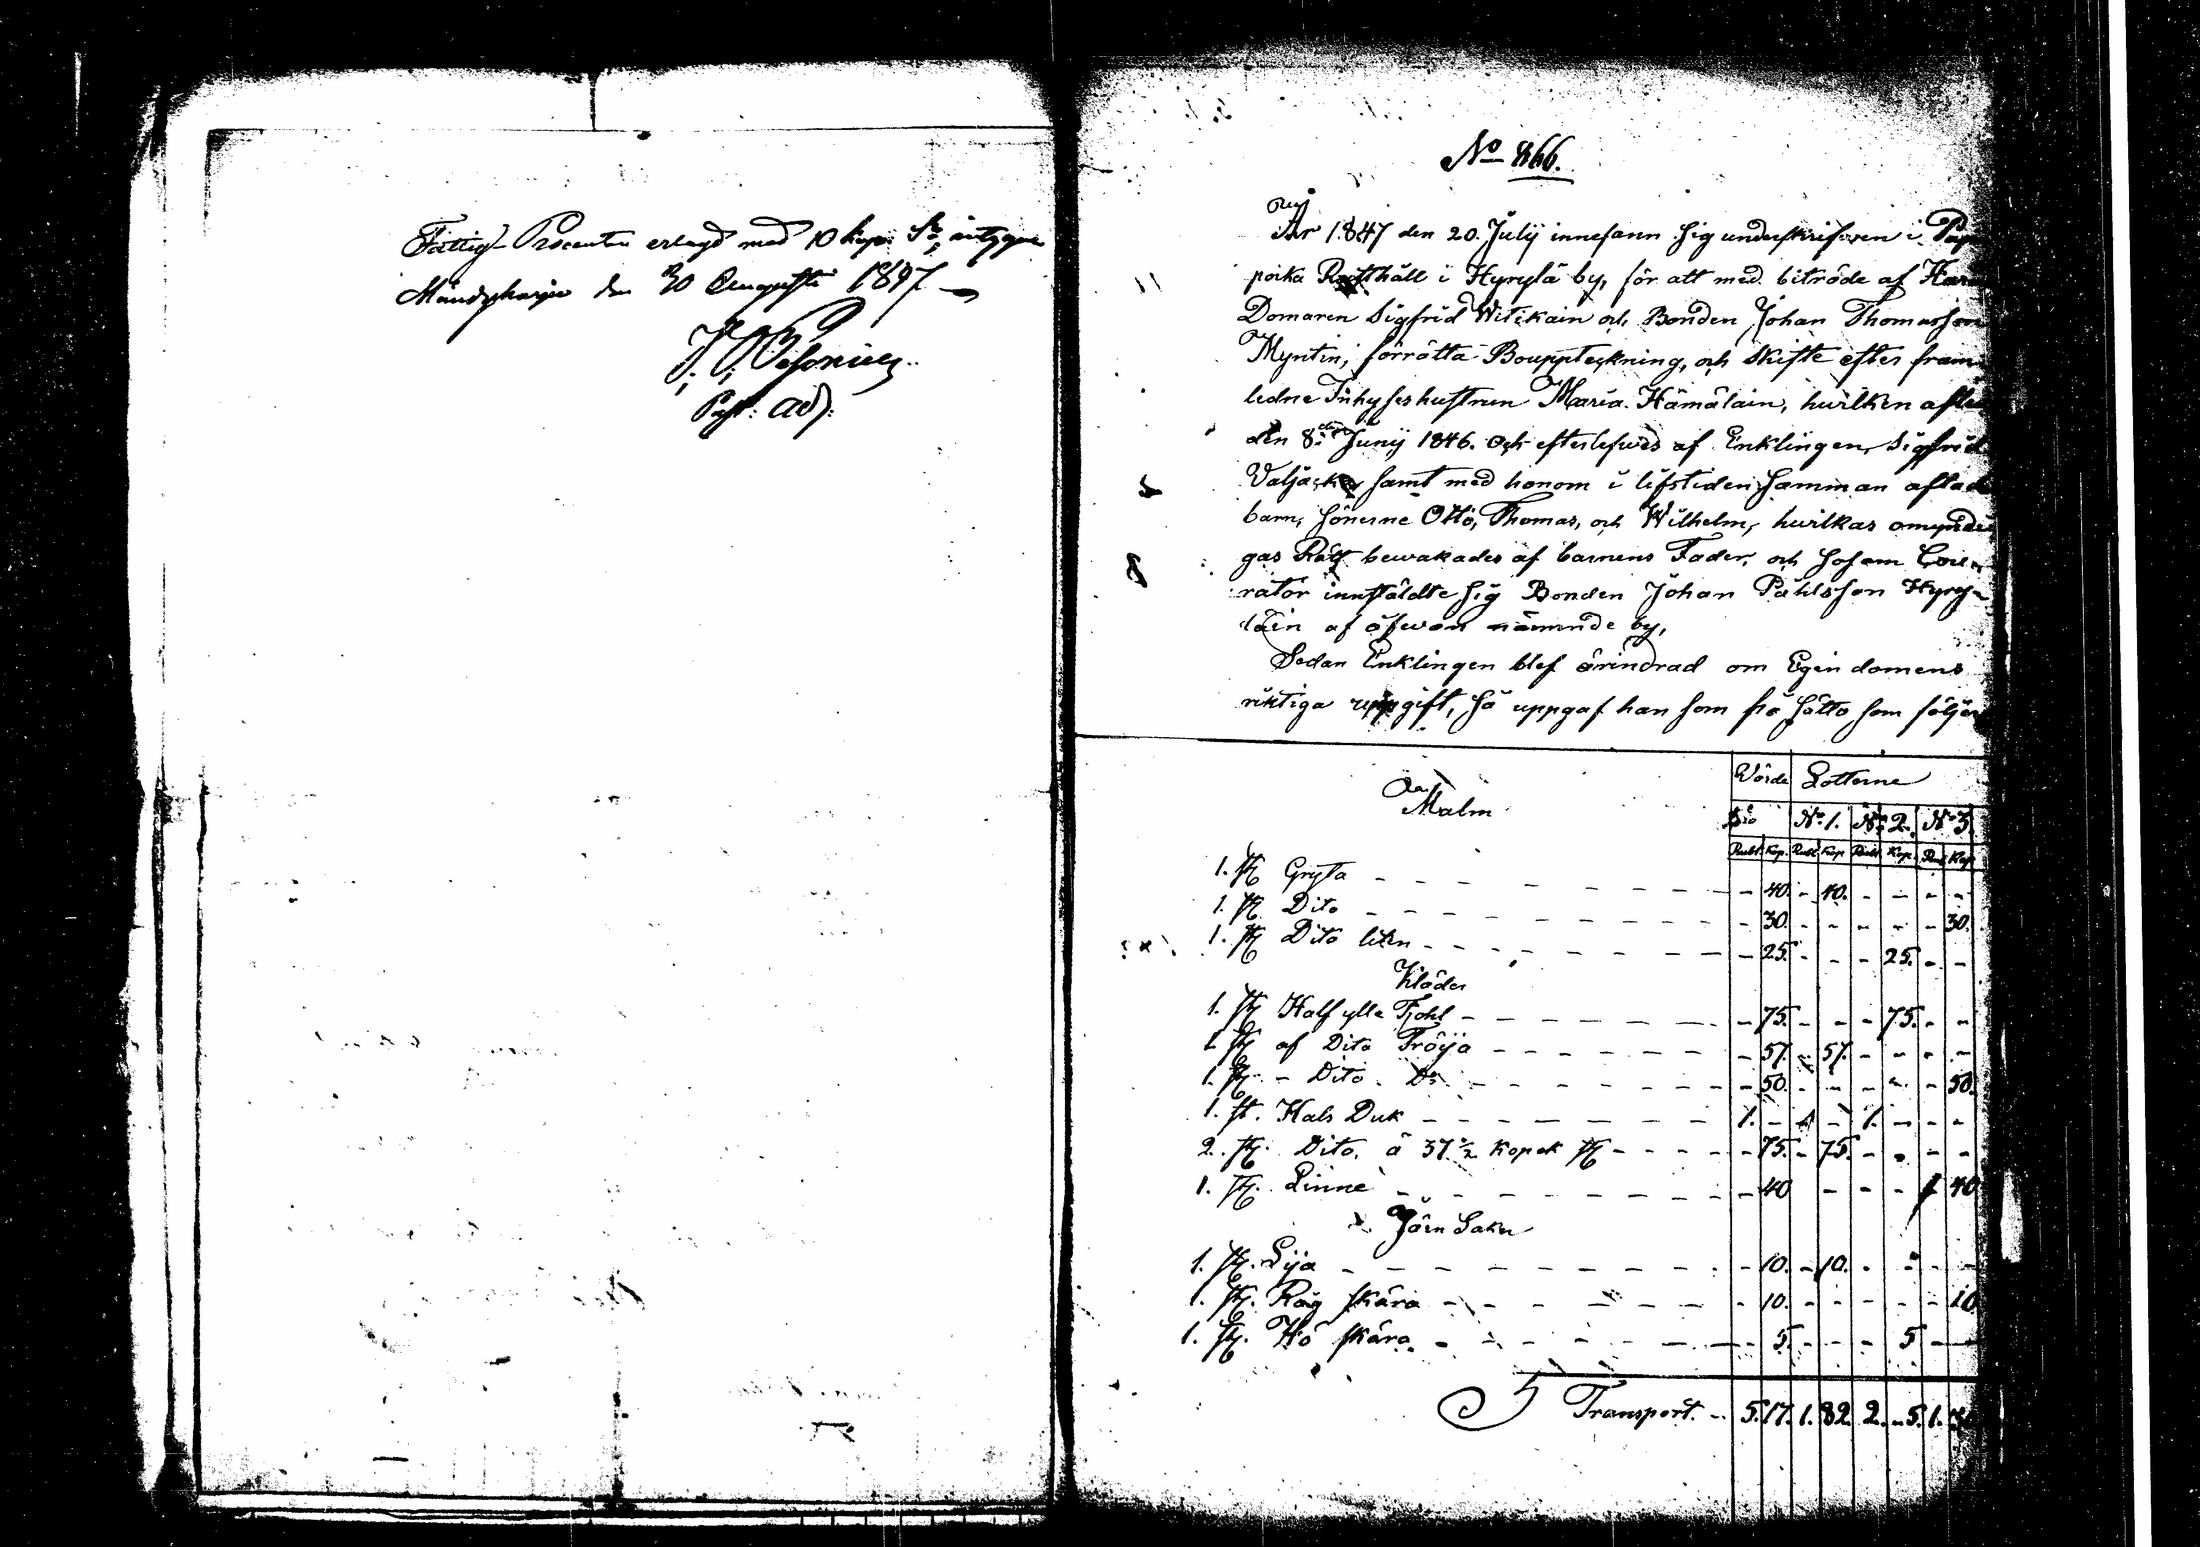 Fattig Procenten erlagd med 10 kop. Sr, intygar
Mändyharju den 30 Augusti 1847.
Past: Adj:
No 866.
År 1847 den 20. Julij innefann sig underskrifven i Pap
poika Rusthåll i Hyrylä by, för att med biträde af
Domaren Sigfrid Witikain och Bonden Johan Thomasson
Myntin, förrätta Bouppteckning, och skifte efter fram
ledne Inhyseshustrun Maria Hämäläin, hvilken afled
den 8:de Junij 1846. och efterlefves af Enklingen Sigfrid
Valjacka samt med honom i lifstiden samman aflade
barn, Sönerne Otto, Thomas, och Wilhelm, hvilkas omyndi
gas Rätt bevakades af barnens Fader, och såsom Cou
rator innstäldte sig Bonden Johan Påhlsson Hyry
läin af ofvan nämnde by,
Sedan Enklingen blef ärindrad om Egindomens
riktiga uppgift, så uppgaf han som frå sätto som följer
Värde Lotterne
Malm
Sro No 1. No 2. No 3.
Rubl Kop. Rubl Kop Rubl Kop. Rubl Kop
1. st Gryta - 40. - 40. - - - -
1. st Dito - 30. - - - - - 30.
1. st Dito liten - 25. - - - 25. - -
Kläder
1. st Half ylle Kjohl - 75. - - - 75. - -
1. st af Dito Tröija - 57. - 57. - - - -
1. st - Dito. Do - 50. - - - - - 50.
1. st. Hals Duk 1. - - - 1. - - -
2. st. Dito. á 37 1/2 Kopek st - 75. - 75. - - - -
1. st. Linne - 40 - - - - - 40
Järn Saker
1. st. Lija - 10. - 10. - - - -
1. st. Råg skära - 10. - - - - - 10
1. st. Hö skära - 5. - - - 5 - -
Transport. 5. 17. 1. 82. 2. 5. 1. 30